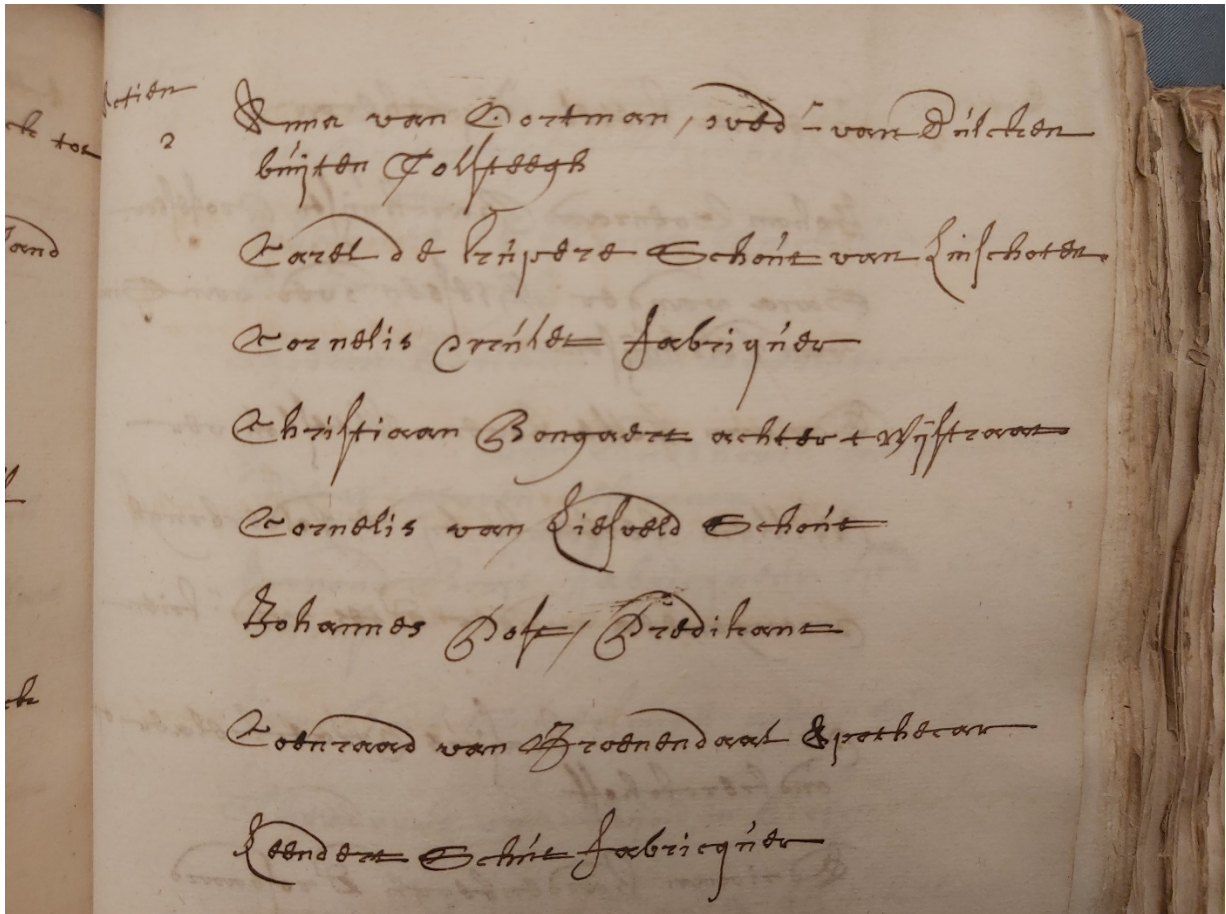 Actien
2
Anna van Oortman, wed:e van Dulcken
buijten Tolsteegh
Carel de Cruijere Schout van Linschoten
Cornelis fabriquer
Christiaan Bongaert achter t Wijstraat
Cornelis van Liesveld Schout
Johannes Post, Predikant
Coenraad van Groenendaal Apothecar
Leendert Schut fabricquer
ck tot
land
ck